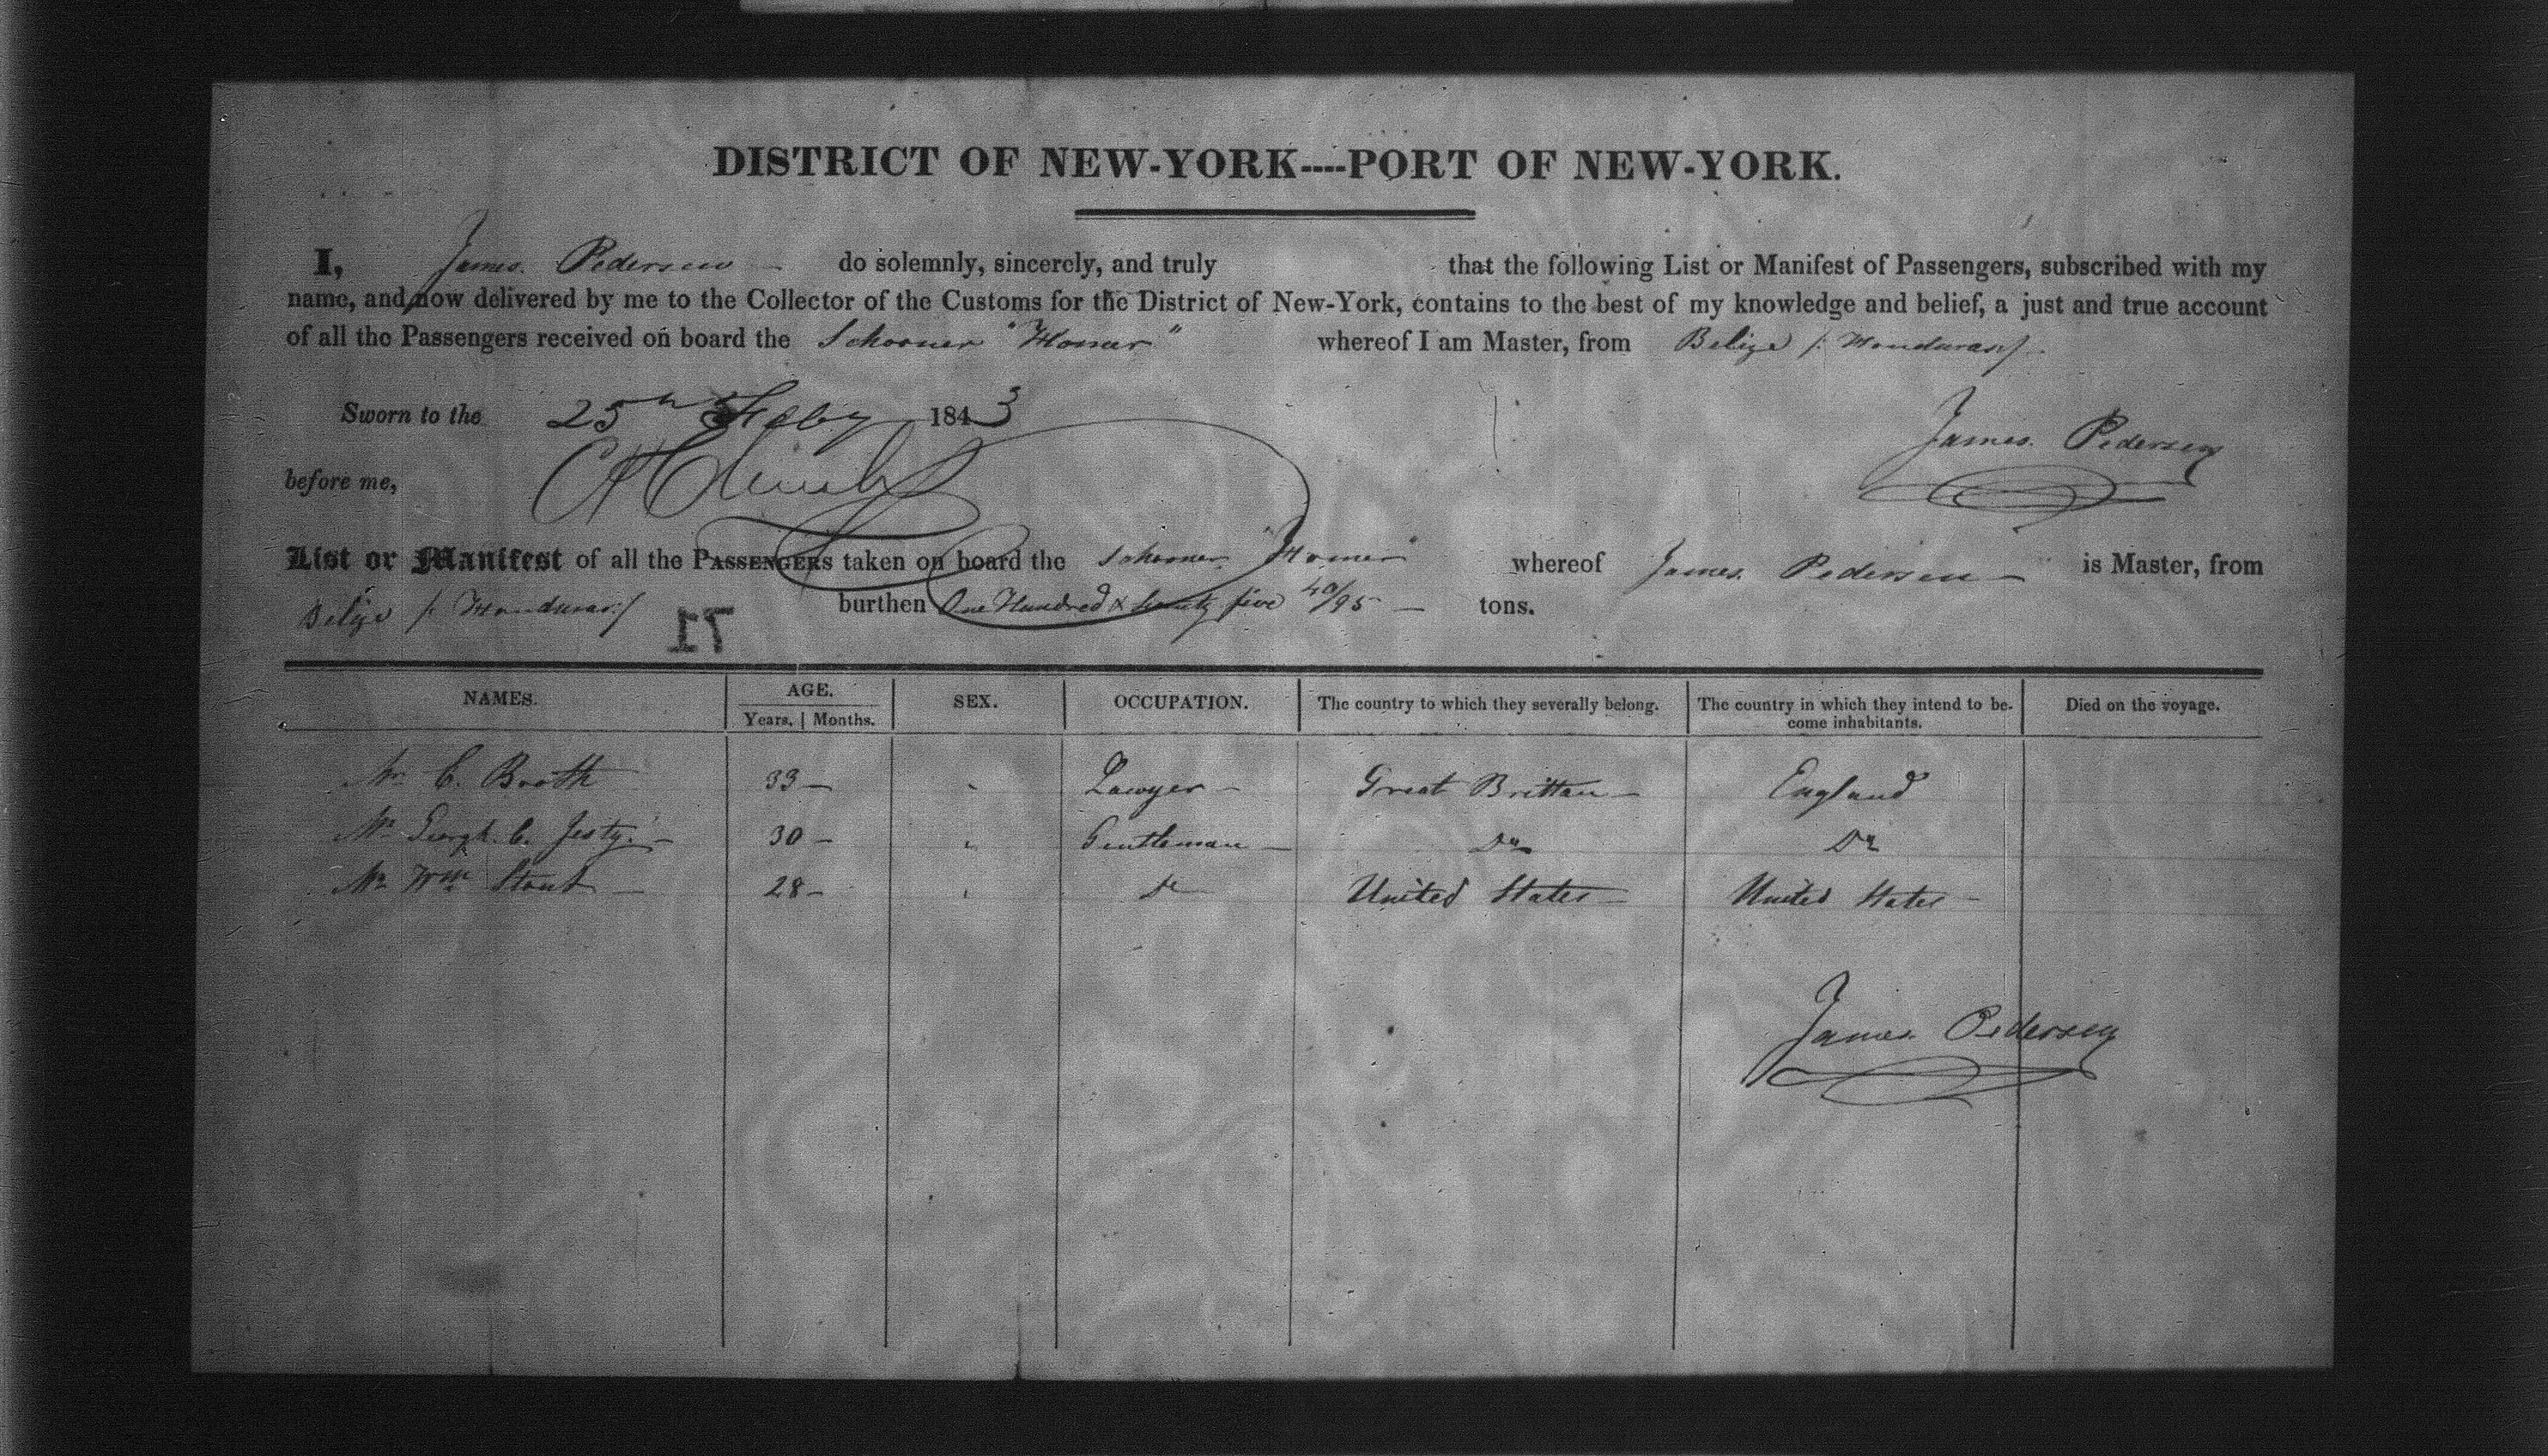 DISTRICT OF NEW-YORK----PORT OF NEW-YORK.
I, James Pedersen do solemnly, sincerely, and truly that the following List or Manifest of Passengers, subscribed with my
name, and now delivered by me to the Collector of the Customs for the District of New-York, contains to the best of my knowledge and belief, a just and true account
of all the Passengers received on board the Schooner "Homer" whereof I am Master, from Belize /: Honduras:/
Sworn to the 25th Feby 1843
James Pedersen
before me,
List or Manifest of all the PASSENGERS taken on board the Schooner "Homer" whereof James Pedersen is Master, from
Belize /: Honduras:/ burthen One Hundred & five 40/95 tons.
17
NAMES. AGE. SEX. OCCUPATION. The country to which they severally belong. The country in which they intend to be- Died on the voyage.
Years. Months. come inhabitants.
Mr C. Booth 33 Lawyer Great Brittan England
Mr C. Jesty 30 Gentleman Do Do
Mr Wm Stout 28 Do United States United States
James Pedersen